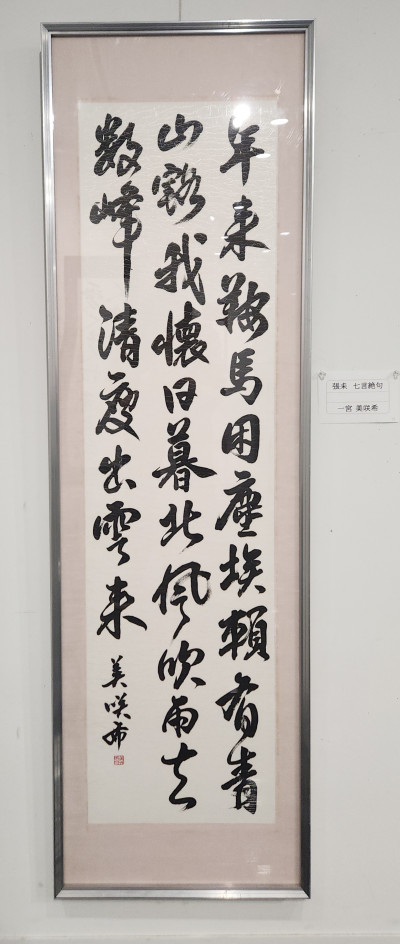 年来鞍馬困塵埃頼有青
山豁我懐日暮北風吹雨去
数峰清痩出雲来
美咲希
張耒 七言絶句
一宮 美咲希